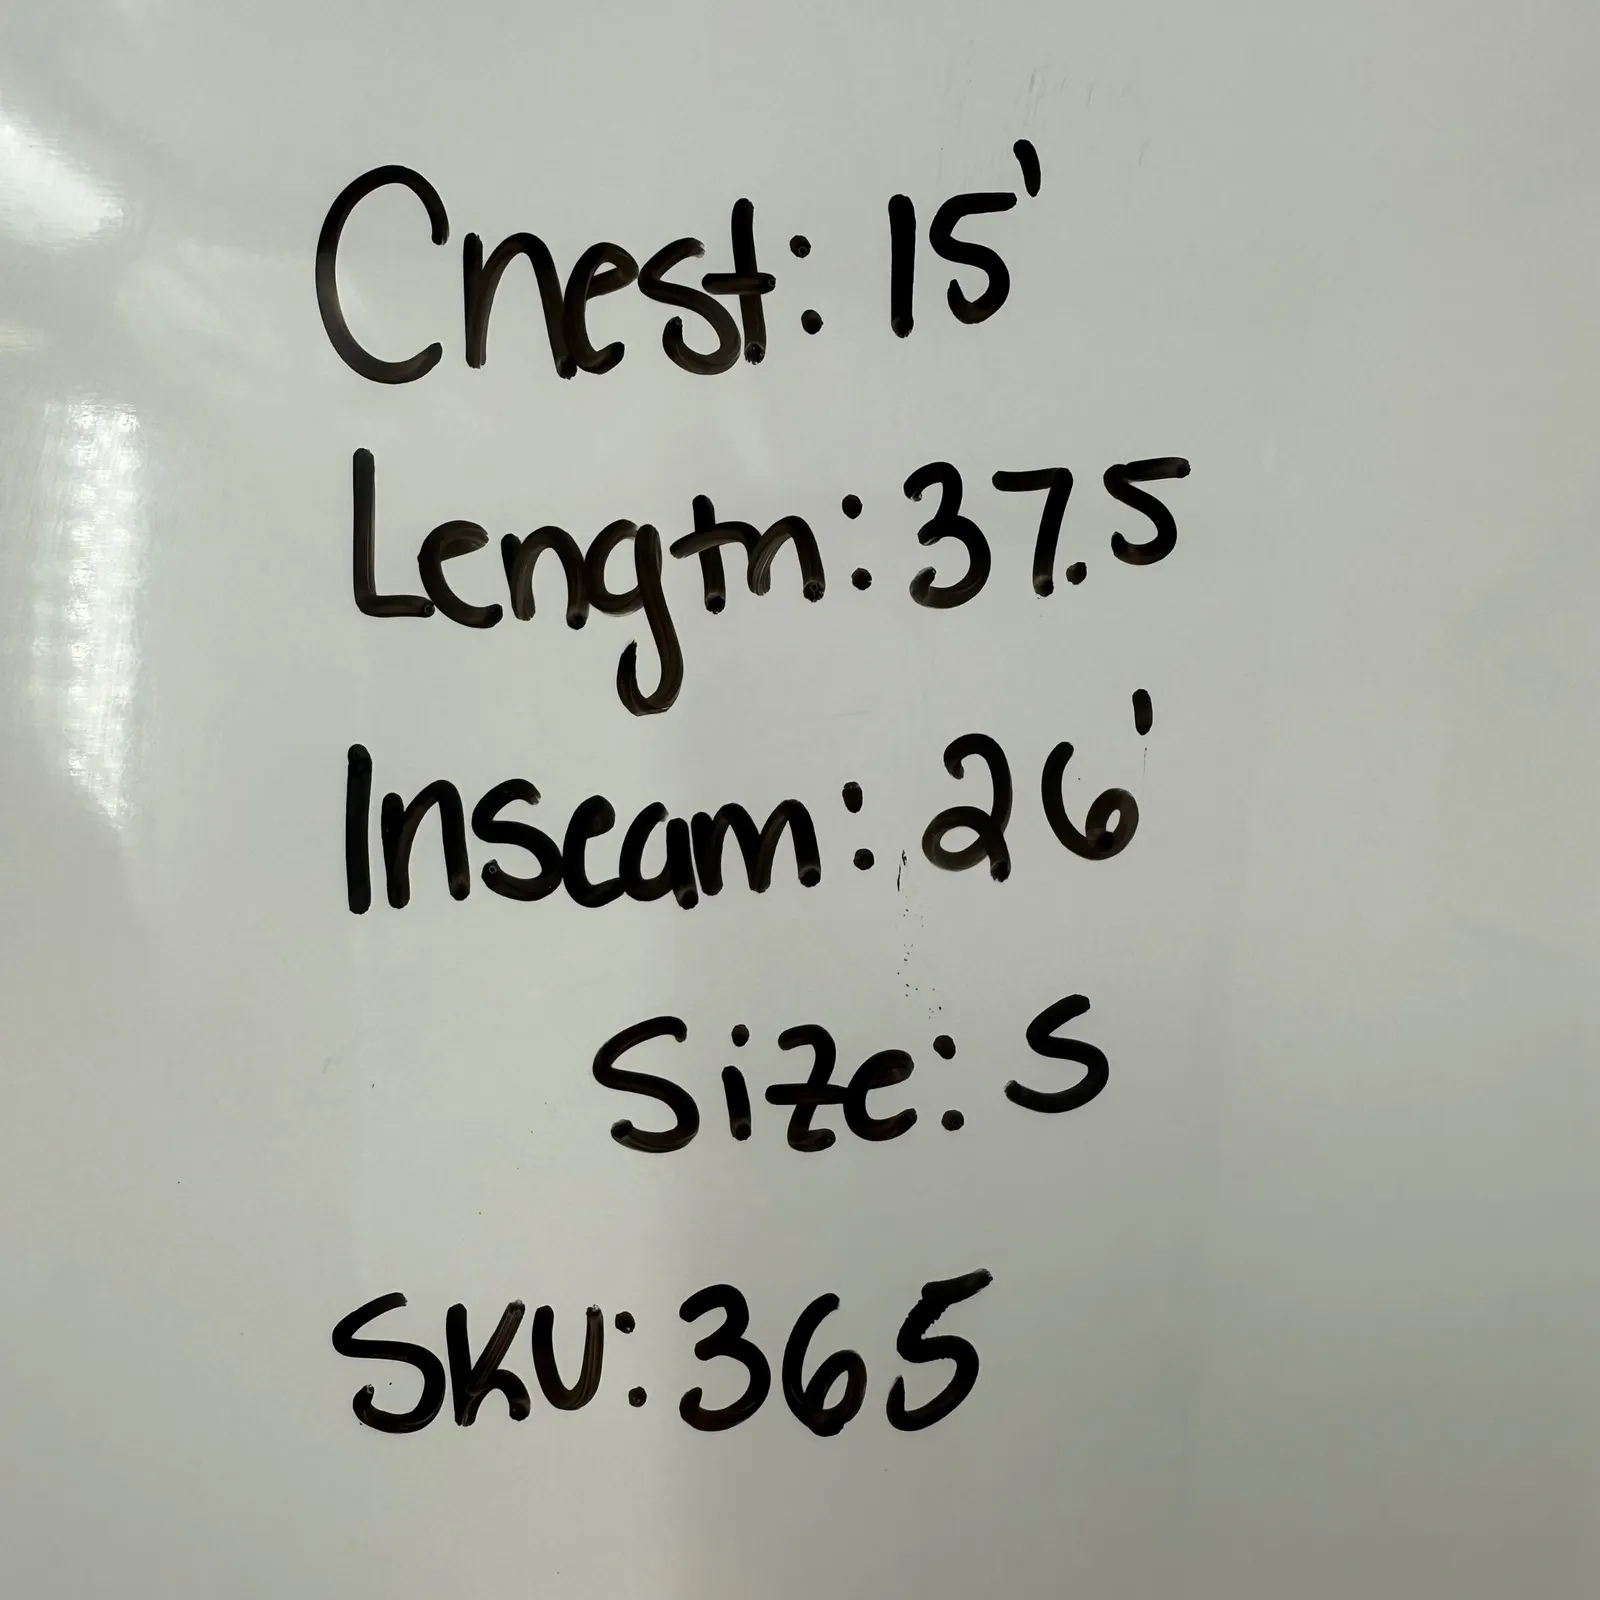 Chest: 15'
Length: 37.5
Inseam: 26'
Size: S
SKU: 365